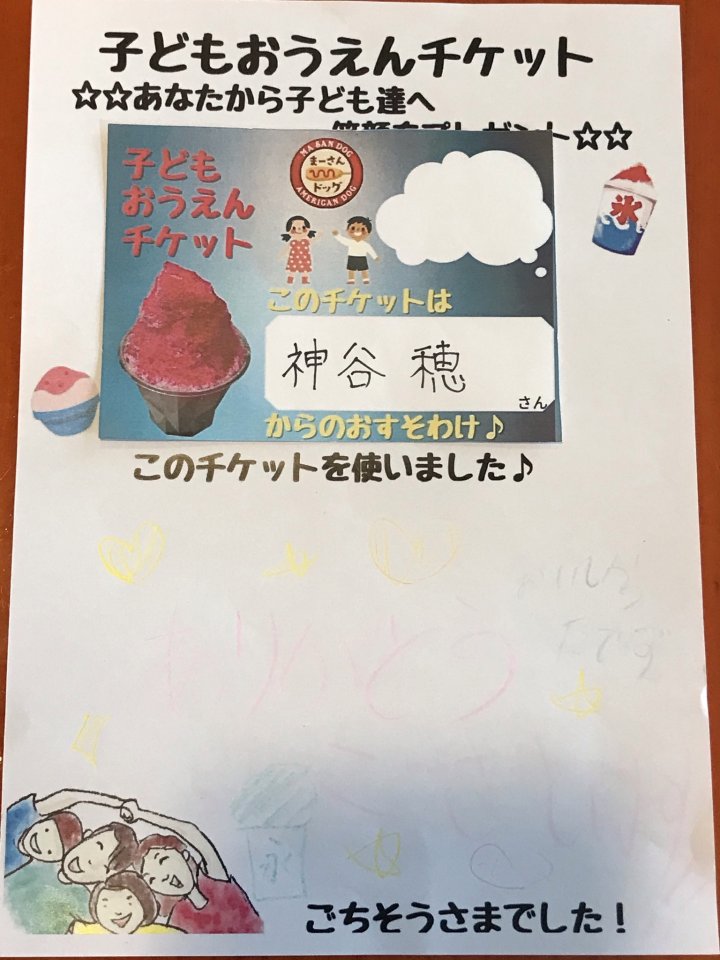 子どもおうえんチケット
☆☆あなたから子ども達へ
笑顔をプレゼント☆☆
子ども
おうえん
チケット
MA SAN DOG
まーさん
ドッグ
AMERICAN DOG
氷
このチケットは
神谷 穂
さん
からのおすそわけ♪
このチケットを使いました♪
ありがとう
氷
ごちそうさまでした!